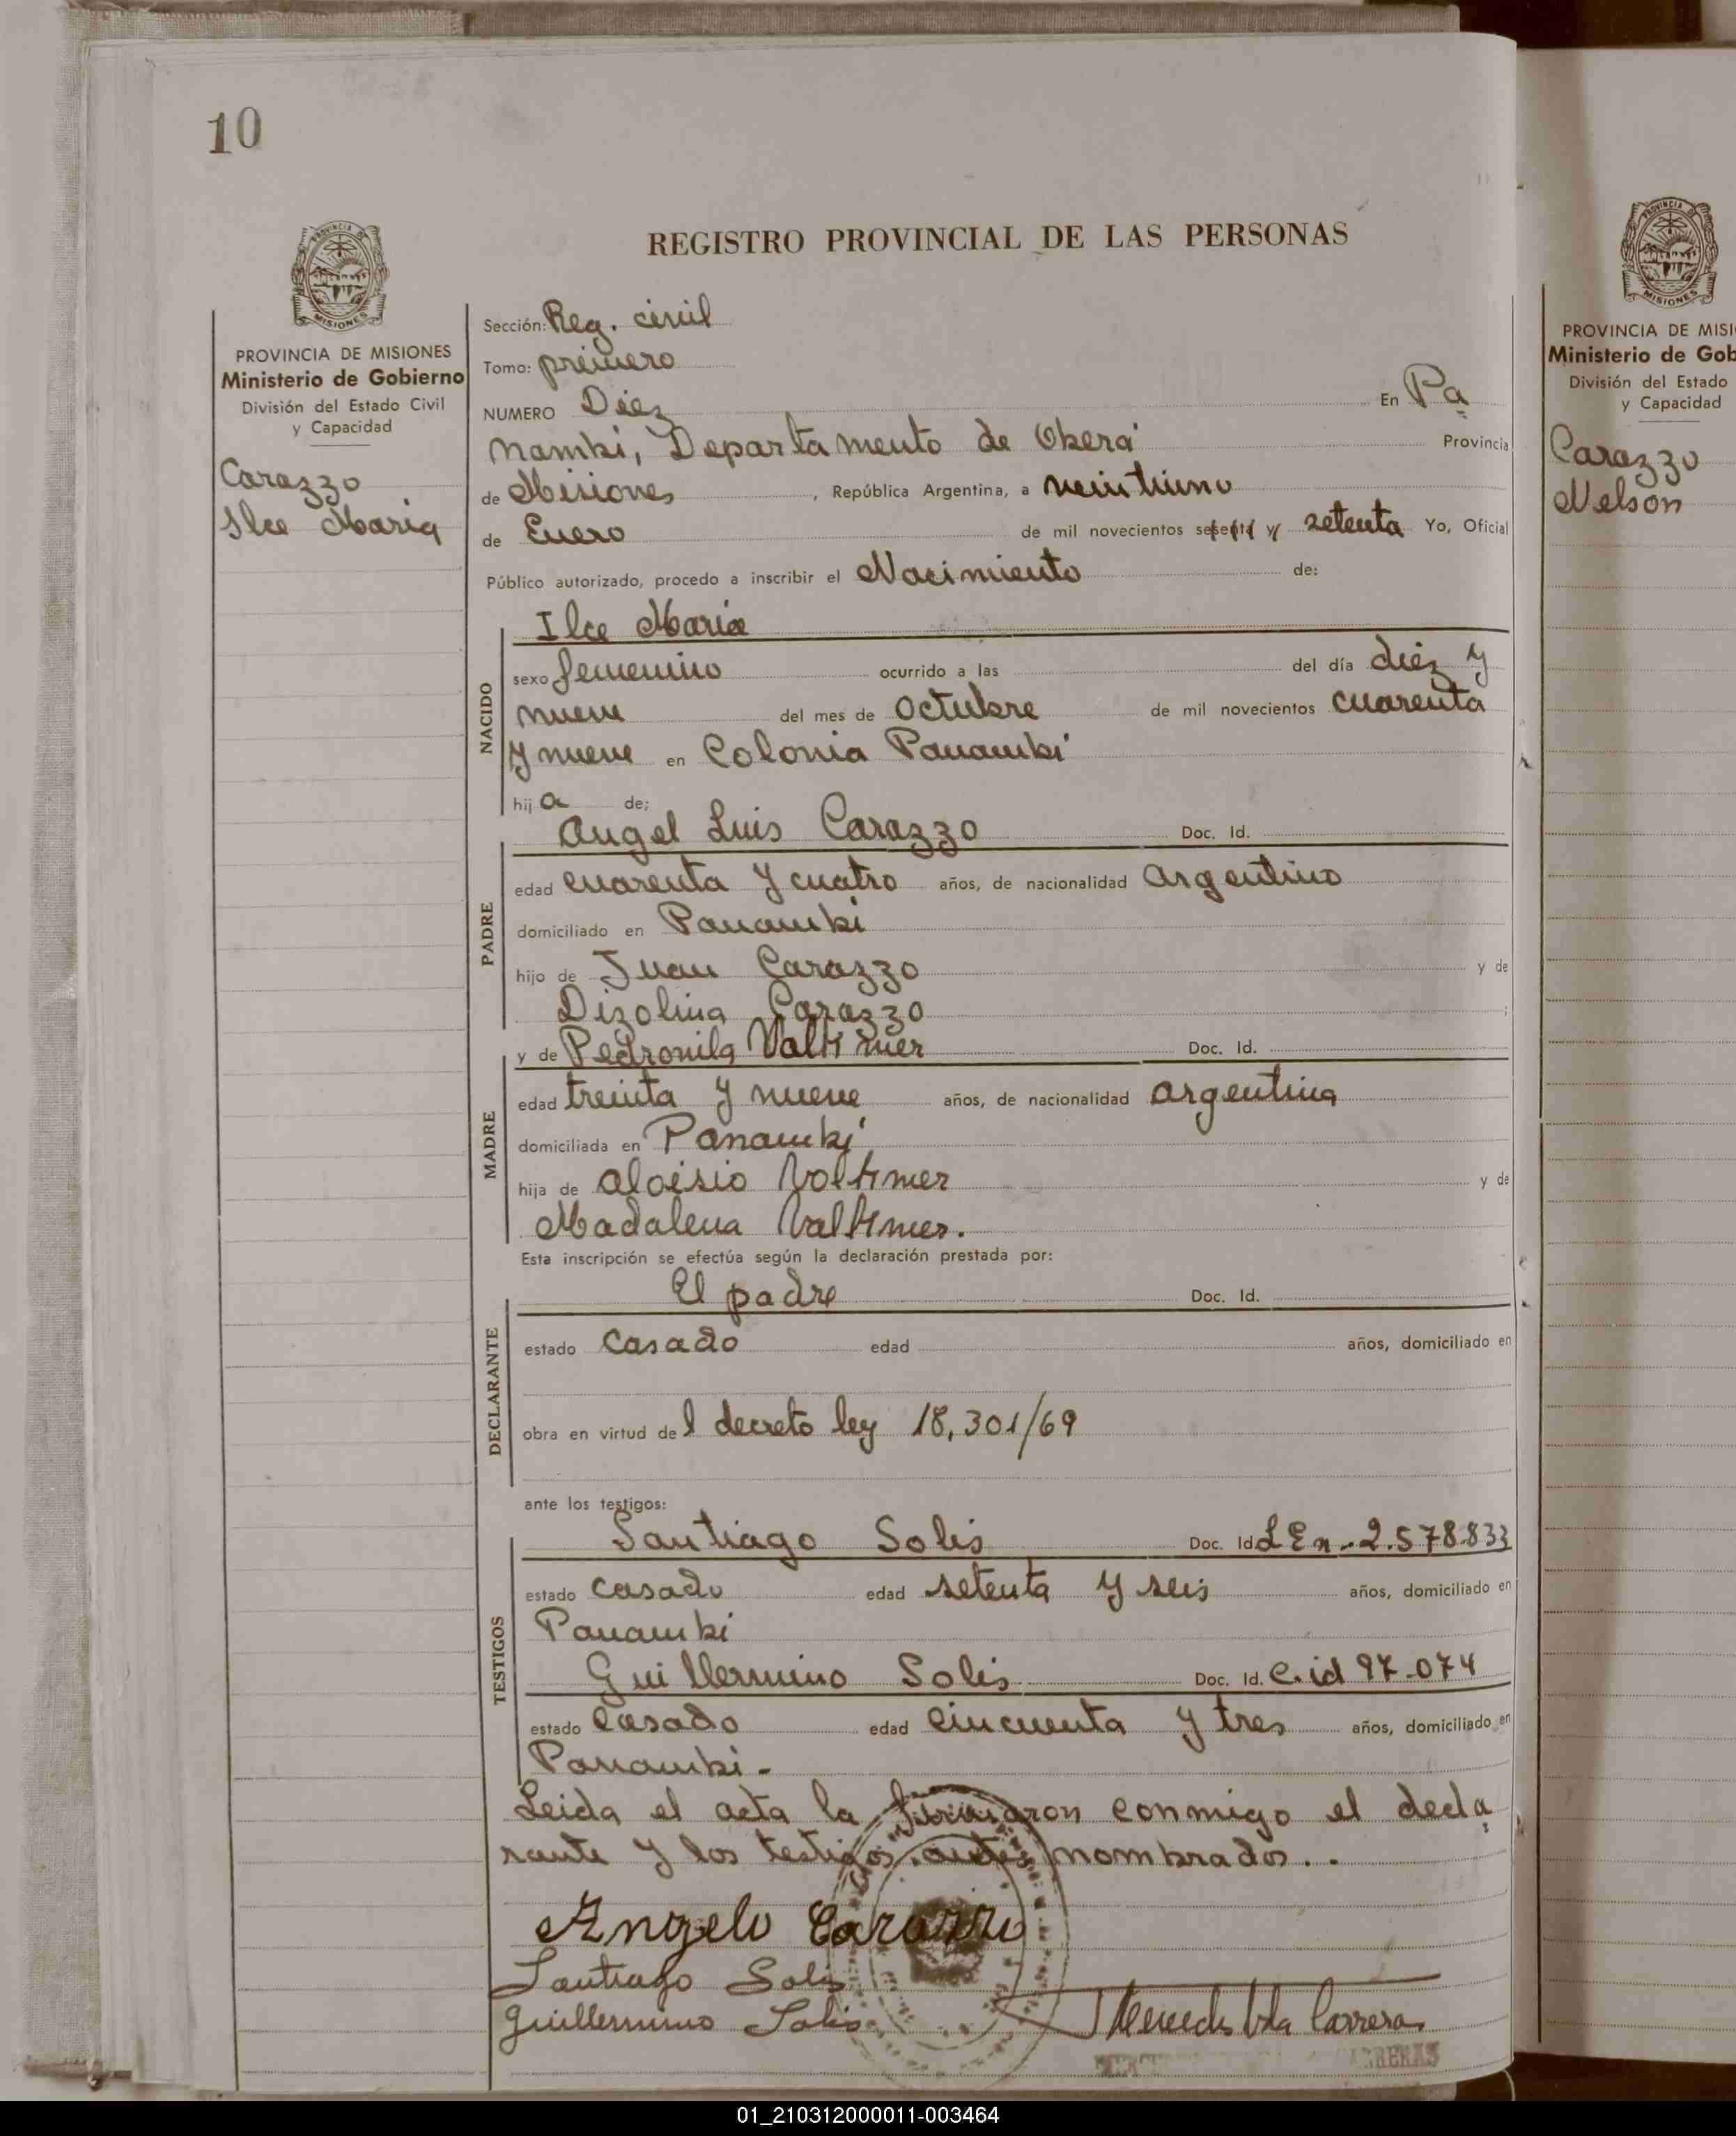 10
REGISTRO PROVINCIAL DE LAS PERSONAS
PROVINCIA DE MISIONES
Ministerio de Gobierno
División del Estado Civil
y Capacidad
Carazzo
Ilce María
Sección: Reg. civil
Tomo: primero
NUMERO Diez En Pa
nambí, Departamento de Oberá Provincia
de Misiones, República Argentina, a veintiuno
de Enero de mil novecientos sesenta y setenta Yo, Oficial
Público autorizado, procedo a inscribir el Nacimiento de:
NACIDO
Ilce María
sexo femenino ocurrido a las del día diez y
nueve del mes de Octubre de mil novecientos cuarenta
y nueve en Colonia Panambí
hija de;
PADRE
Angel Luis Carazzo Doc. Id.
edad cuarenta y cuatro años, de nacionalidad argentino
domiciliado en Panambí
hijo de Juan Carazzo y de
Dizolina Carazzo ;
MADRE
y de Pedronila Doc. Id.
edad treinta y nueve años, de nacionalidad argentina
domiciliada en Panambí
hija de Aloisio y de
Madalena
Esta inscripción se efectúa según la declaración prestada por:
DECLARANTE
El padre Doc. Id.
estado Casado edad años, domiciliado en
obra en virtud del decreto ley 18.301/69
ante los testigos:
TESTIGOS
Santiago Solis Doc. Id. L En. 2.578.833
estado casado edad setenta y seis años, domiciliado en
Panambí
Guillermino Solis Doc. Id. C. id 97.074
estado Casado edad cincuenta y tres años, domiciliado en
Panambí.
Leida el acta la firmaron conmigo el decla
rante y los testigos antes nombrados..
Angelo Carazzo
Santiago Solis
Guillermino Solis
Carreras
CARRERAS
PROVINCIA DE MISI
Ministerio de Gob
División del Estado
y Capacidad
Carazzo
Nelson
01_210312000011-003464